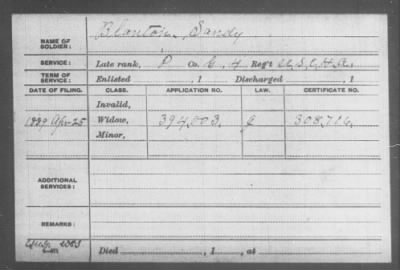 NAME OF SOLDIER: Blanton, Sandy
SERVICE: Late rank, P Co. C, 4 Reg't U.S.C.H.A.
TERM OF SERVICE: Enlisted , 1 Discharged , 1
DATE OF FILING. CLASS. APPLICATION NO. LAW. CERTIFICATE NO.
Invalid,
1889 Apr 25 Widow, 394,003. 308,716.
Minor,
ADDITIONAL SERVICES:
REMARKS:
Died , 1 , at